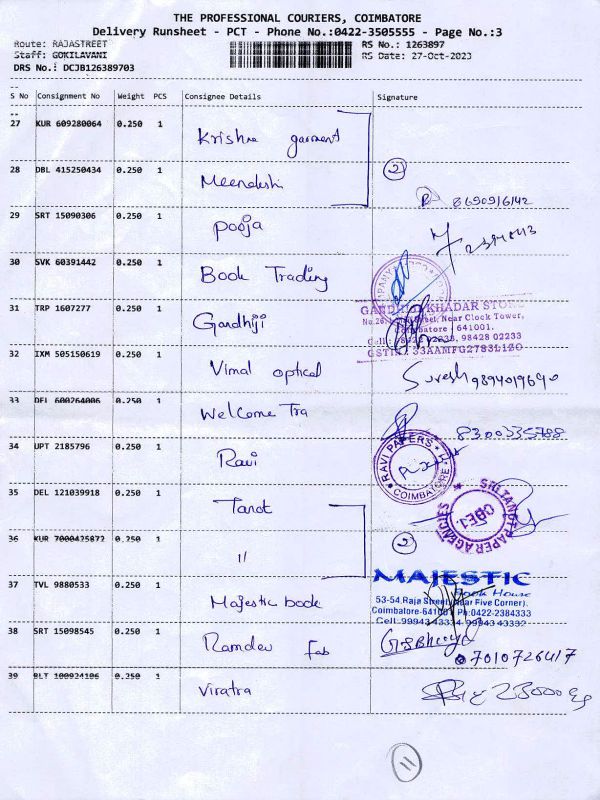 THE PROFESSIONAL COURIERS, COIMBATORE
Delivery Runsheet - PCT - Phone No.:0422-3505555 - Page No.:3
Route: RAJASTREET
RS No.: 1263897
Staff: GOKILAVANI
RS Date: 27-Oct-2023
DRS No.: DCJB126389703
S No Consignment No Weight PCS Consignee Details Signature
27 KUR 609280064 0.250 1 Krishna garment
28 DBL 415250434 0.250 1 Meenakshi
2
8690916142
29 SRT 15090306 0.250 1 Pooja
30 SVK 60391442 0.250 1 Book Trading
GANDHIJI KHADAR STORE
31 TRP 1607277 0.250 1 Gandhiji
Near Clock Tower,
Coimbatore 641001.
98428 02233
GSTIN: 33AAMFG2783L1ZO
32 IXM 505150619 0.250 1 Vimal optical Suresh 9894019690
33 DEL 600264006 0.250 1 Welcome Tra 8300335788
34 UPT 2185796 0.250 1 Ravi
RAVI PAPERS
COIMBATORE
35 DEL 121039918 0.250 1 Tanot
PAPER AGENCIES
CBE.1.
36 KUR 7000425872 0.250 1 11
2
MAJESTIC
Book House
37 TVL 9880533 0.250 1 Majestic book
53-54, Raja Street (Near Five Corner),
Coimbatore-641001 Ph:0422-2384333
Cell:99943 43334, 99943 43332
38 SRT 15098545 0.250 1 Ramdev fab
7010726417
39 BLT 100924106 0.250 1 Viratra
11